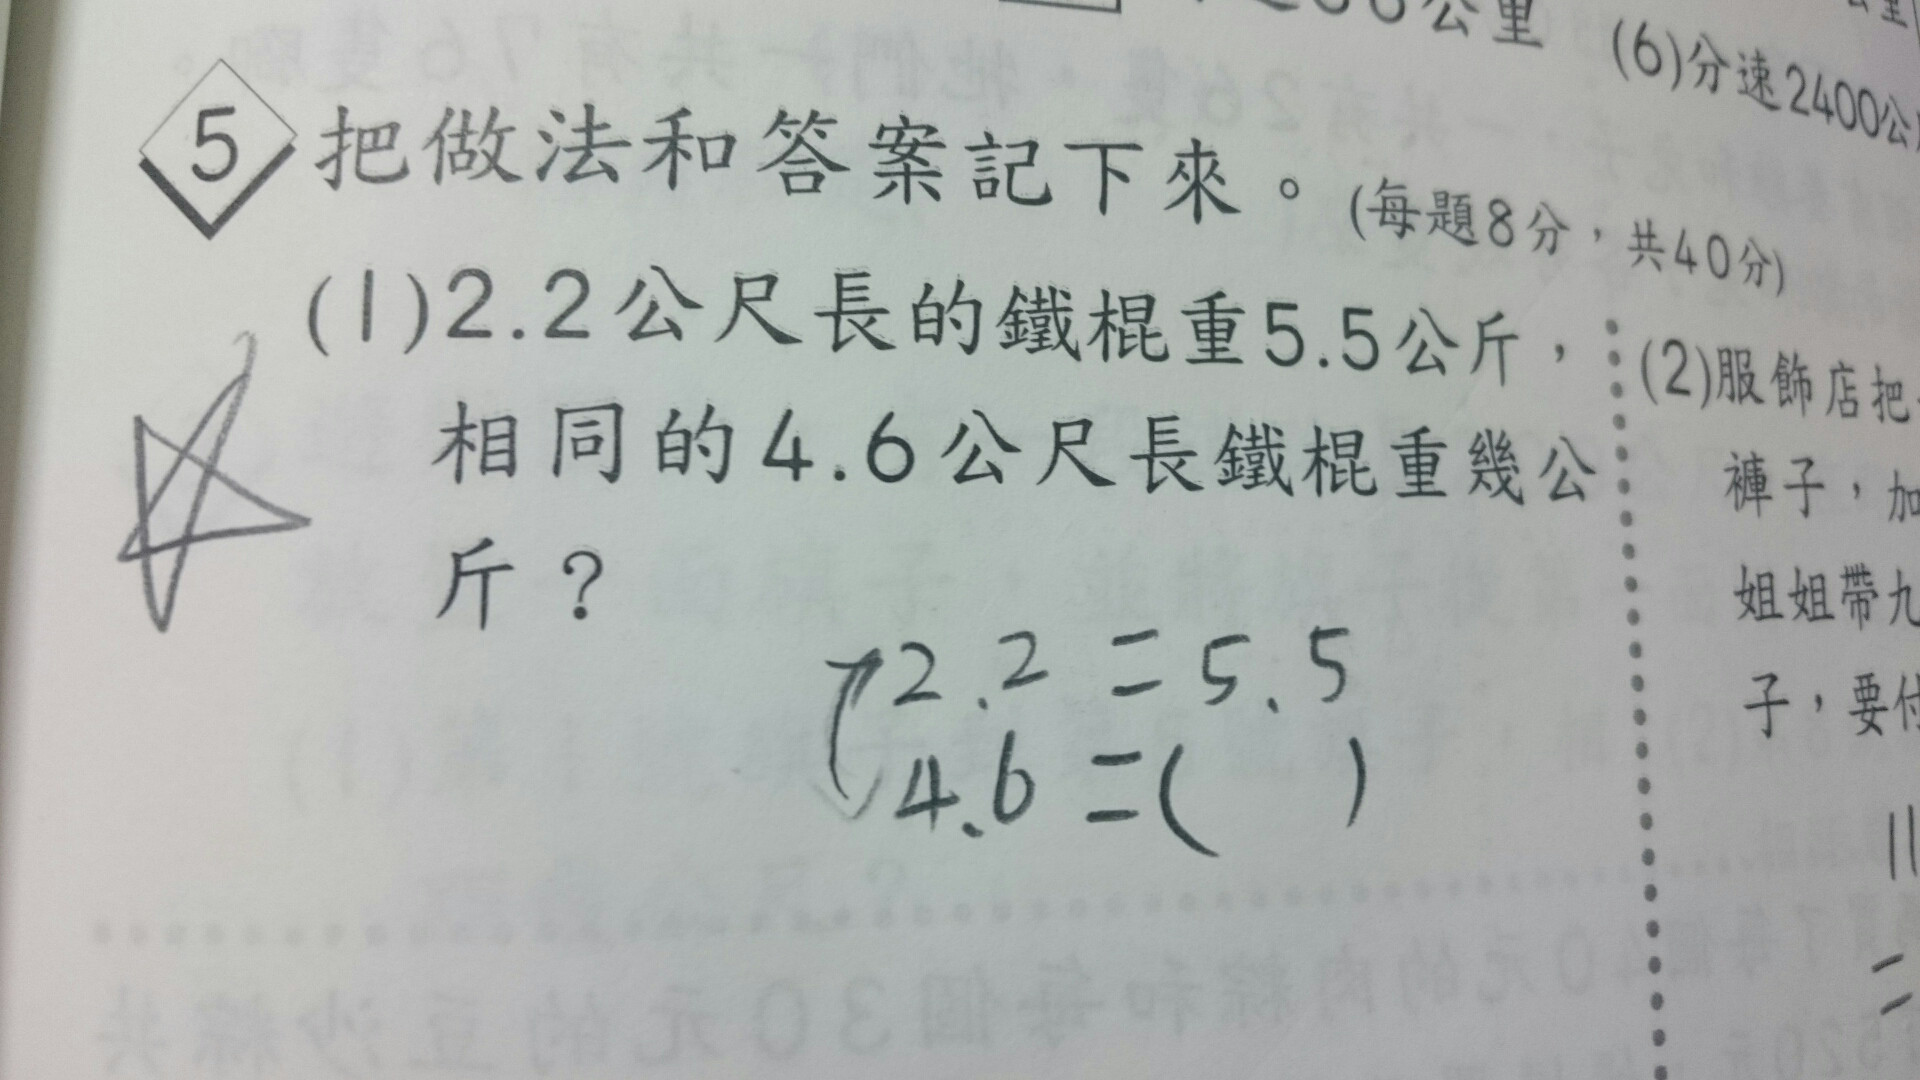 公里
(6)分速2400公
5 把做法和答案記下來。(每題8分，共40分)
(1)2.2公尺長的鐵棍重5.5公斤，
相同的4.6公尺長鐵棍重幾公
斤？
2.2=5.5
4.6=( )
(2)服飾店把
褲子，加
姐姐帶九
子，要付